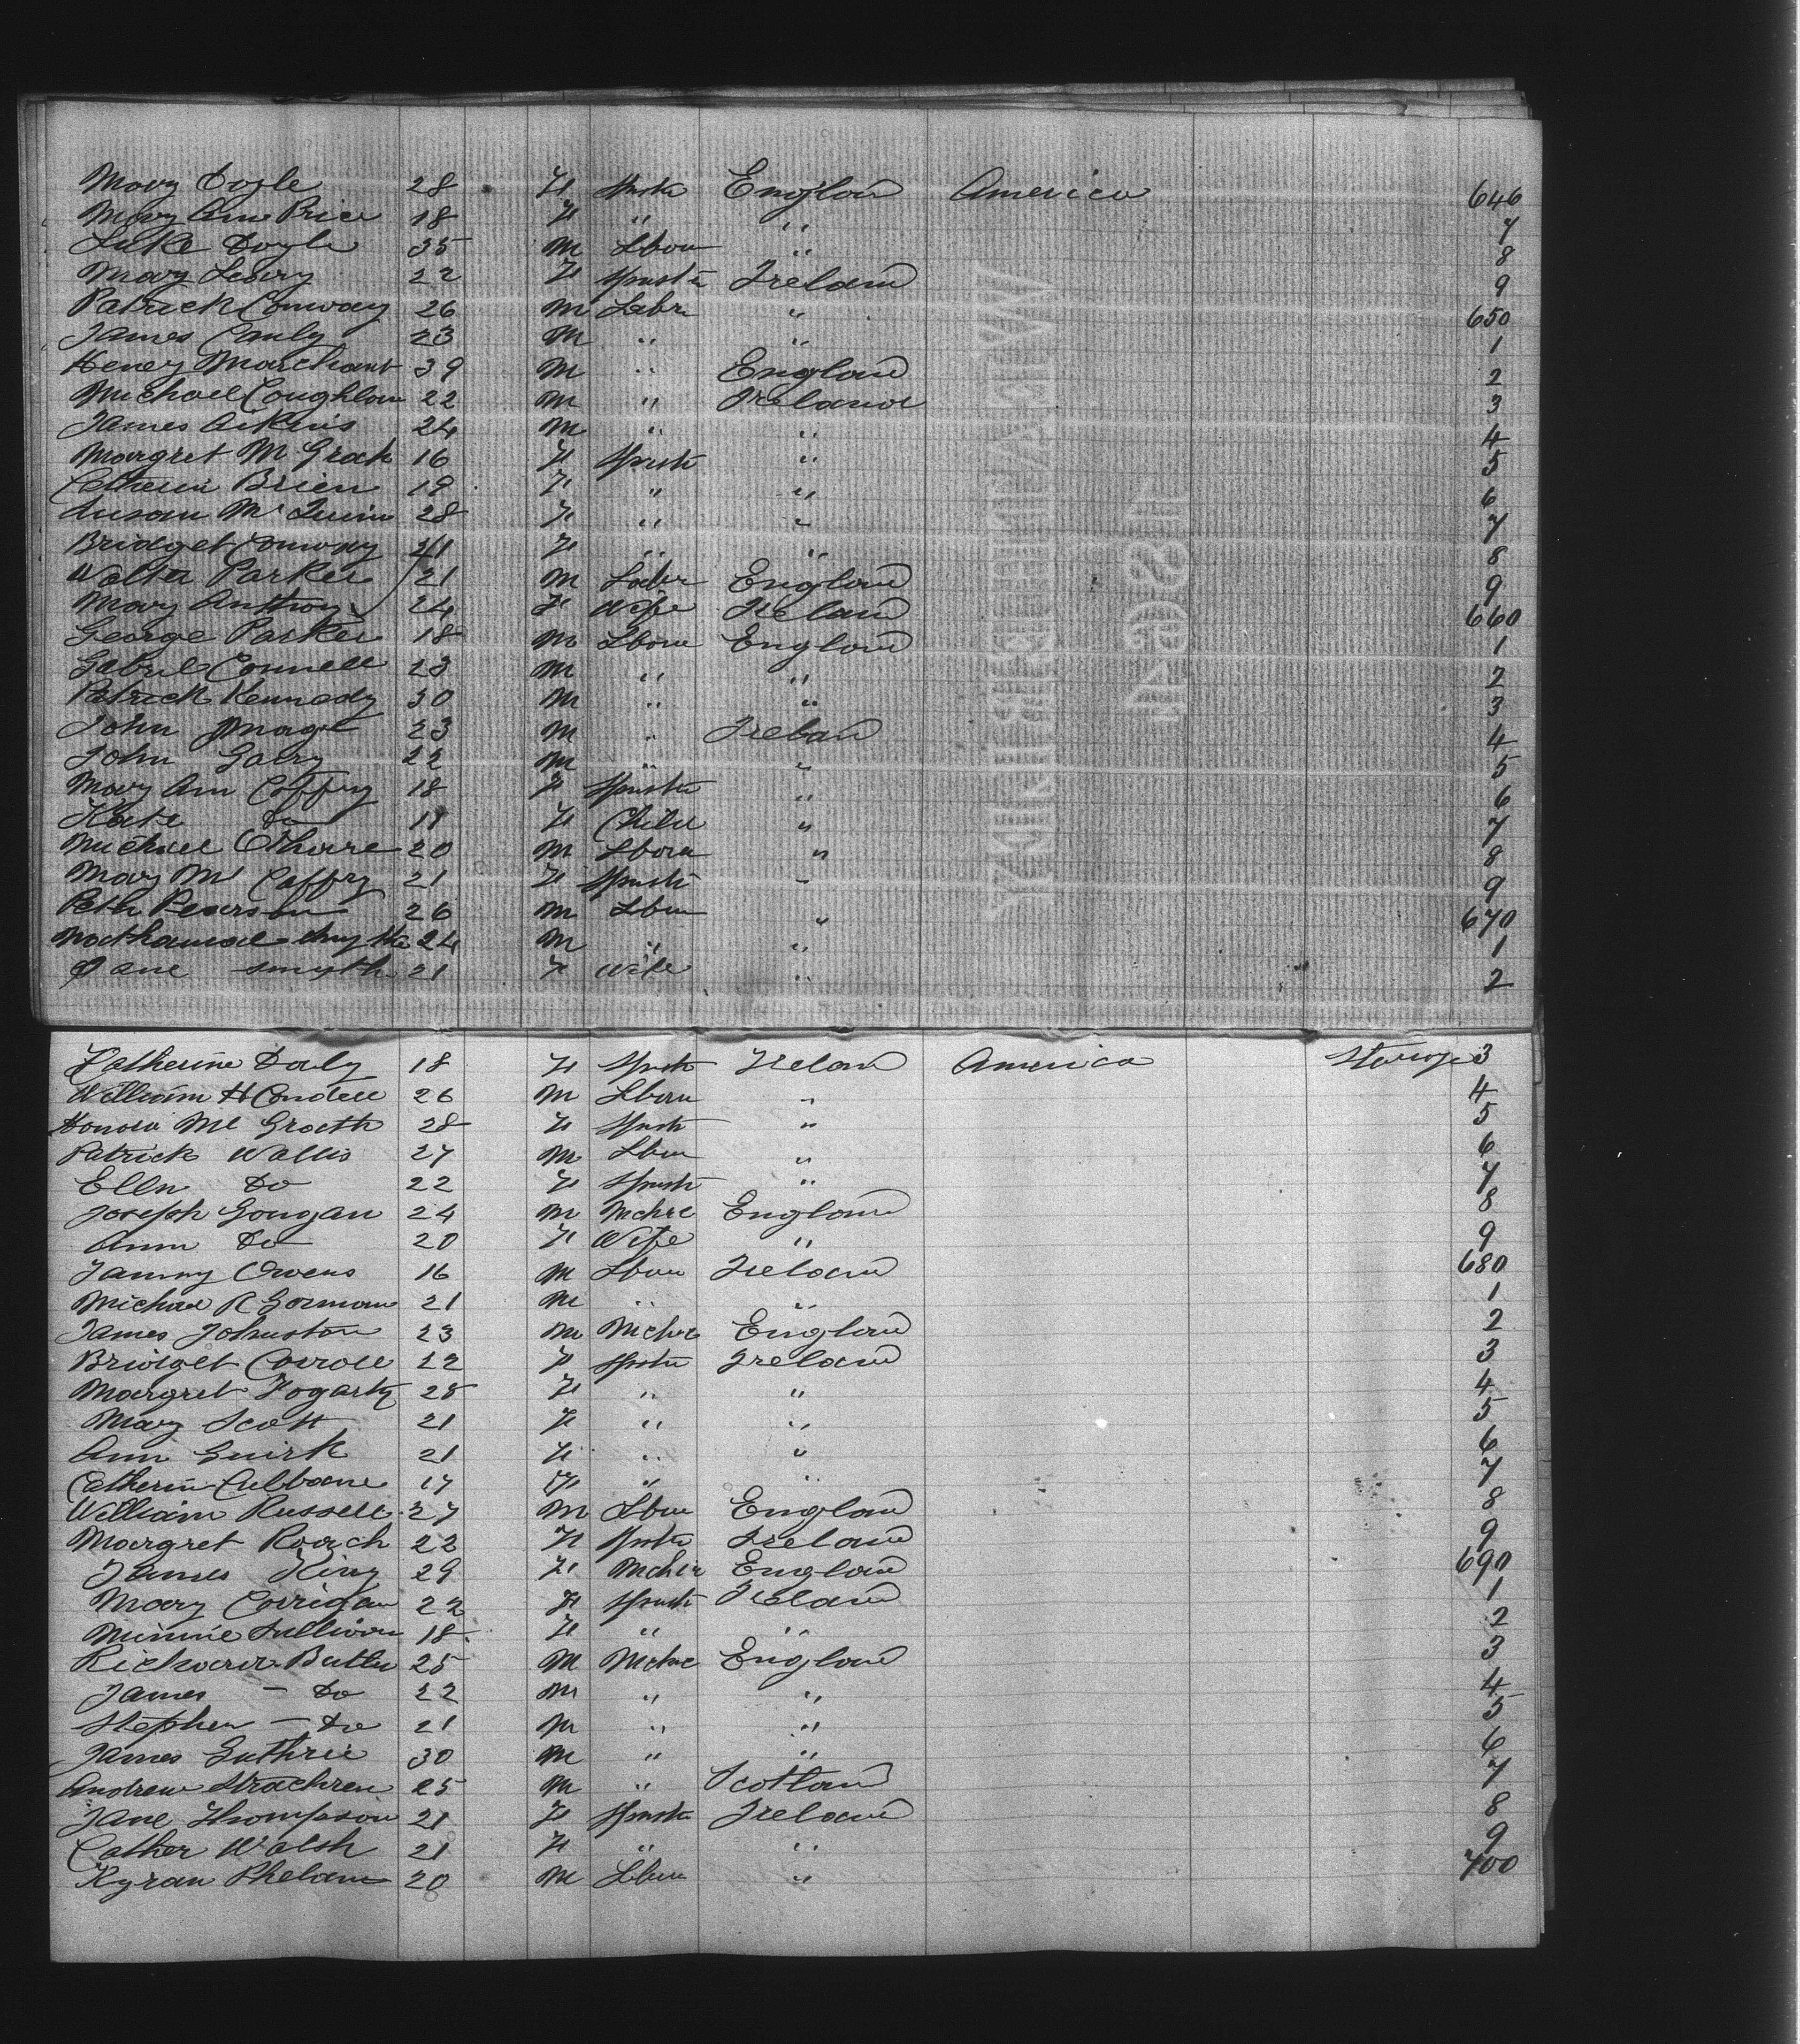 Mary Doyle 28 F Spustr England America 646
Mary Ann Price 18 F " " 7
Luke Doyle 35 M Lbour " 8
Mary Leary 22 F Spustr Ireland 9
Patrick Conway 26 M Labr " 650
James Cauly 23 M " " 1
Henry Marchant 39 M " England 2
Michael Coughlan 22 M " Ireland 3
James Aikins 24 M " " 4
Margret Mc Grath 16 F Spustr " 5
Catherin Brien 19 F " " 6
Susan Mc Quinn 28 F " " 7
Bridget Conway 21 F " " 8
Walter Parker 21 M Labr England 9
Mary Anthony 24 F Wife Ireland 660
George Parker 18 M Lbour England 1
Gabriel Connell 23 M " " 2
Patrick Kennedy 30 M " " 3
John Magee 23 M " Ireland 4
John Garry 22 M " " 5
Mary Ann Caffry 18 F Spustr " 6
Kate Do 11 F Child " 7
Michael Ohare 20 M Lbour " 8
Mary Mc Caffry 21 F Spustr " 9
Peth Pearson 26 M Lbour " 670
Nathanial Smythe 24 M " " 1
Jane Smyth 21 F Wife " 2
Katherine Daly 18 F Spustr Ireland America Sterage 3
William H Condell 26 M Lbour " 4
Honora Mc Grath 28 F Spustr " 5
Patrick Wallis 27 M Lbour " 6
Ellen Do 22 F Spustr " 7
Joseph Gougan 24 M Mchnc England 8
Ann Do 20 F Wife " 9
Tammy Owens 16 M Lbour Ireland 680
Michael R Gorman 21 M " " 1
James Johnston 23 M Mchnc England 2
Bridget Carroll 22 F Spustr Ireland 3
Margret Fogarty 28 F " " 4
Mary Scott 21 F " " 5
Ann Guirk 21 F " " 6
Catherin Culbane 17 F " " 7
William Russell 27 M Lbour England 8
Margret Roach 22 F Spustr Ireland 9
James King 29 F Mchnc England 690
Mary Corrigan 22 F Spustr Ireland 1
Minnie Sullivan 18 F " " 2
Richard Butler 25 M Mchnc England 3
James - Do 22 M " " 4
Stephen - Do 21 M " " 5
James Guthrie 30 M " " 6
Andrew Strachren 25 M " Scotland 7
Jane Thompson 21 F Spustr Ireland 8
Cather Walsh 21 F " " 9
Kyran Phelan 20 M Lbour " 700